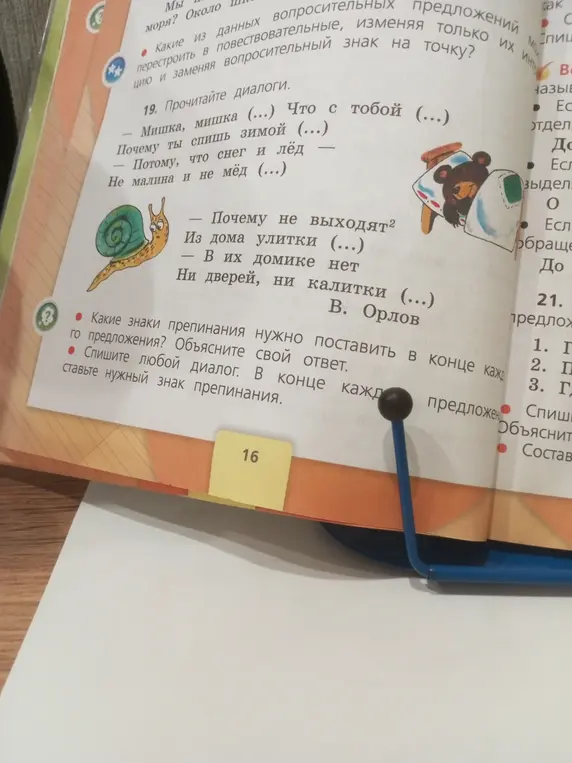 Мы
моря? Около
• Какие из данных вопросительных предложений
перестроить в повествовательные, изменяя только их
цию и заменяя вопросительный знак на точку?
19. Прочитайте диалоги.
— Мишка, мишка (...) Что с тобой (...)
Почему ты спишь зимой (...)
— Потому, что снег и лёд —
Не малина и не мёд (...)
— Почему не выходят²
Из дома улитки (...)
— В их домике нет
Ни дверей, ни калитки (...)
В. Орлов
• Какие знаки препинания нужно поставить в конце кажд
го предложения? Объясните свой ответ.
• Спишите любой диалог. В конце кажд предложен
ставьте нужный знак препинания.
16
• С
Спи
В
назыв
• Ес
отдел
До
• Есл
выдел
О
• Есл
обраще
До
21.
предлож
1.
2. П
3.
• Спиш
Объяснит
• Состав